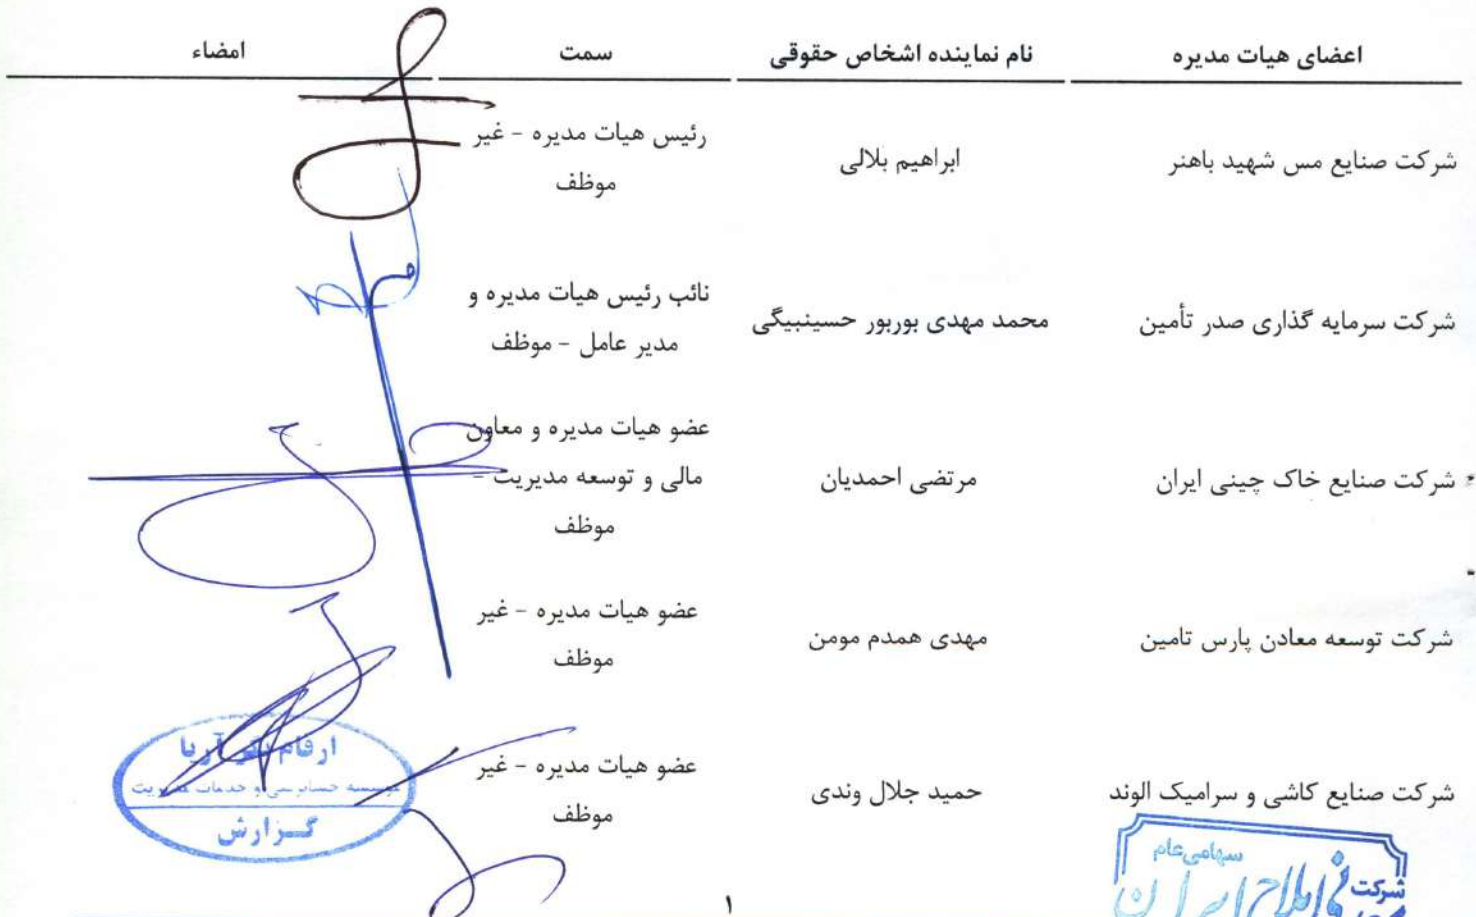 اعضای هیات مدیره نام نماینده اشخاص حقوقی سمت امضاء
شرکت صنایع مس شهید باهنر ابراهیم بلالی رئیس هیات مدیره - غیر
موظف
شرکت سرمایه گذاری صدر تأمین محمد مهدی بوربور حسینبیگی نائب رئیس هیات مدیره و
مدیر عامل - موظف
شرکت صنایع خاک چینی ایران مرتضی احمدیان عضو هیات مدیره و معاون
مالی و توسعه مدیریت -
موظف
شرکت توسعه معادن پارس تامین مهدی همدم مومن عضو هیات مدیره - غیر
موظف
شرکت صنایع کاشی و سرامیک الوند حمید جلال وندی عضو هیات مدیره - غیر
موظف
ارقام نگر آریا
موسسه حسابرسی و خدمات مدیریت
گزارش
سهامی عام
شرکت
املاح ایران
۱